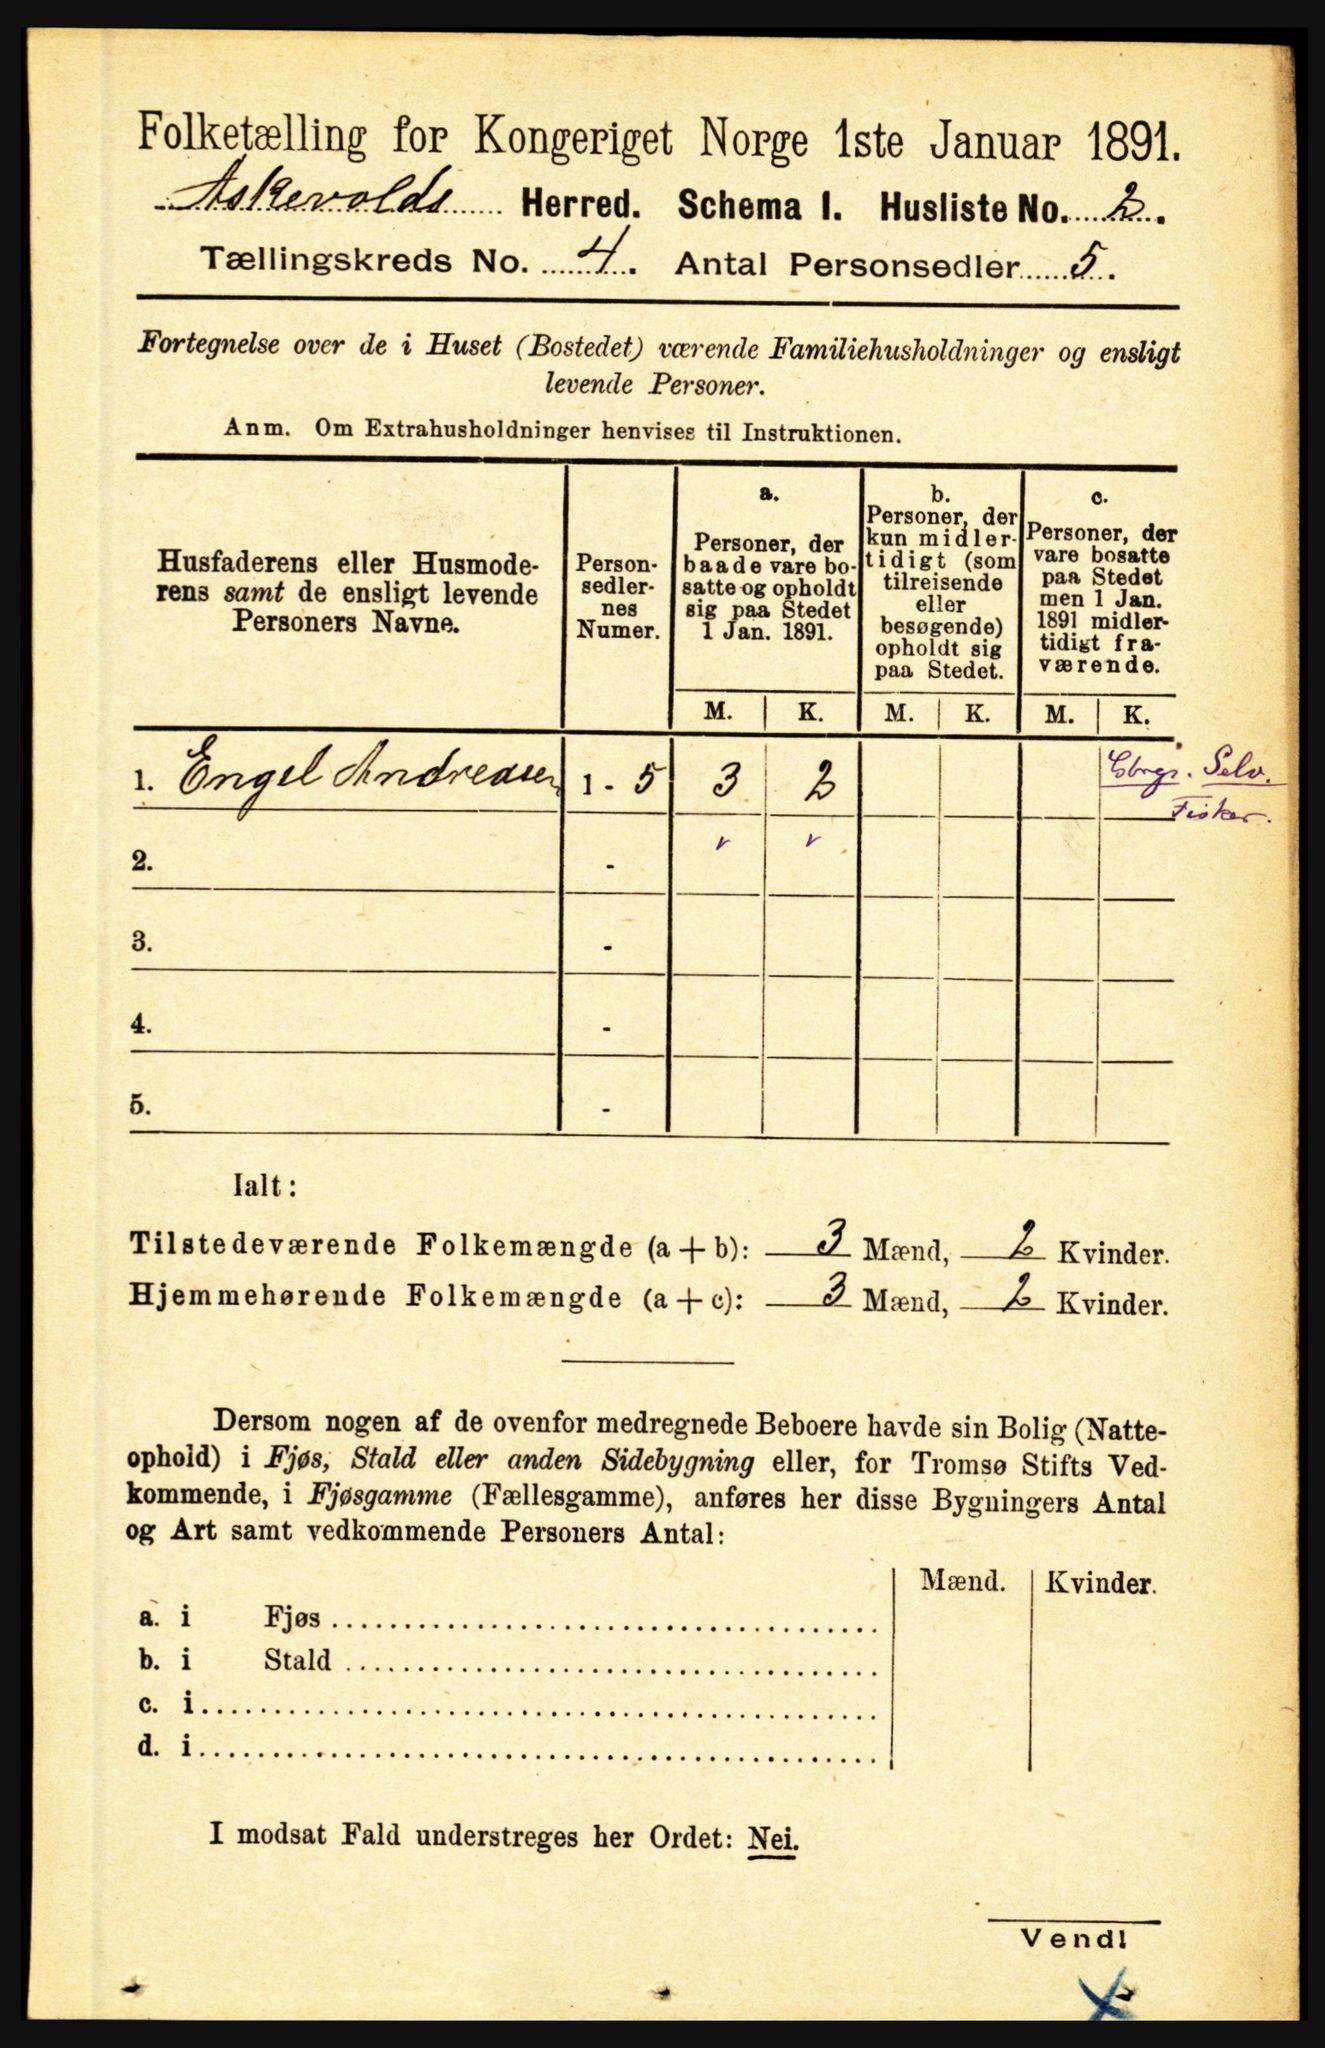 Folketælling for Kongeriget Norge 1ste Januar 1891.
Askevolds Herred. Schema I. Husliste No. 2.
Tællingskreds No. 4. Antal Personsedler 5.
Fortegnelse over de i Huset (Bostedet) værende Familiehusholdninger og ensligt
levende Personer.
Anm. Om Extrahusholdninger henvises til Instruktionen.
Husfaderens eller Husmode-
rens samt de ensligt levende
Personers Navne.
Person-
sedler-
nes
Numer.
a.
Personer, der
baade vare bo-
satte og opholdt
sig paa Stedet
1 Jan. 1891.
b.
Personer, der
kun midler-
tidigt (som
tilreisende
eller
besøgende)
opholdt sig
paa Stedet.
c.
Personer, der
vare bosatte
paa Stedet
men 1 Jan.
1891 midler-
tidigt fra-
værende.
M. K. M. K. M. K.
1. Engel Andreasen 1 - 5 3 2 Gbrgr. Selv.
Fisker.
2. -
3. -
4. -
5. -
Ialt:
Tilstedeværende Folkemængde (a + b): 3 Mænd, 2 Kvinder.
Hjemmehørende Folkemængde (a + c): 3 Mænd, 2 Kvinder.
Dersom nogen af de ovenfor medregnede Beboere havde sin Bolig (Natte-
ophold) i Fjøs, Stald eller anden Sidebygning eller, for Tromsø Stifts Ved-
kommende, i Fjøsgamme (Fællesgamme), anføres her disse Bygningers Antal
og Art samt vedkommende Personers Antal:
Mænd. Kvinder.
a. i Fjøs
b. i Stald
c. i
d. i
I modsat Fald understreges her Ordet: Nei.
Vend!